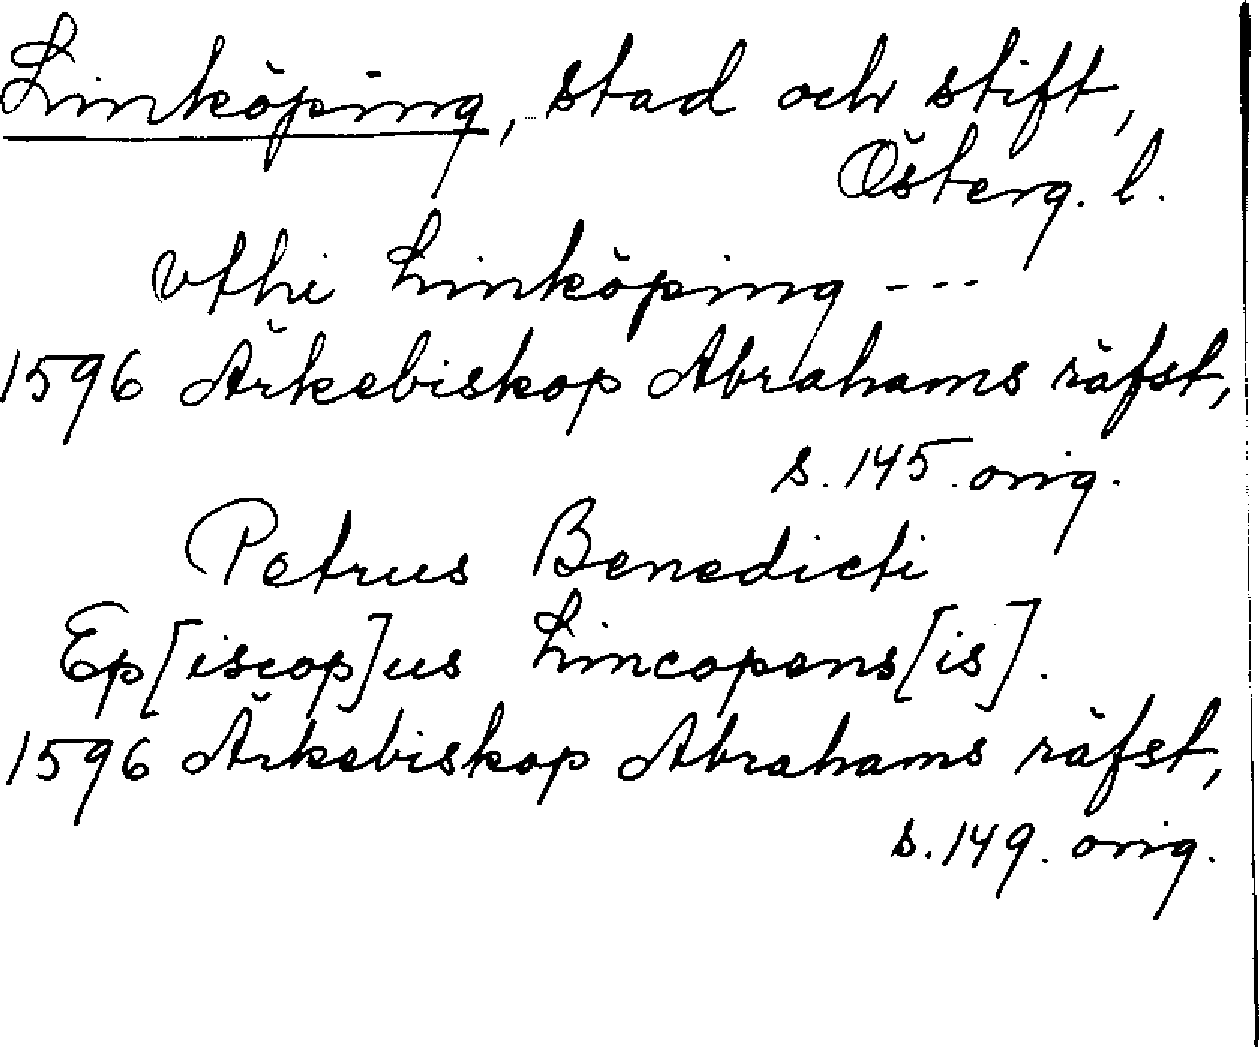 Linköping, stad och stift,
Österg. l.
vthi Linköping ---
1596 Ärkebiskop Abrahams räfst,
s. 145. orig.
Petrus Benedicti
Ep[iscop]us Lincopens[is].
1596 Ärkebiskop Abrahams räfst,
s. 149. orig.